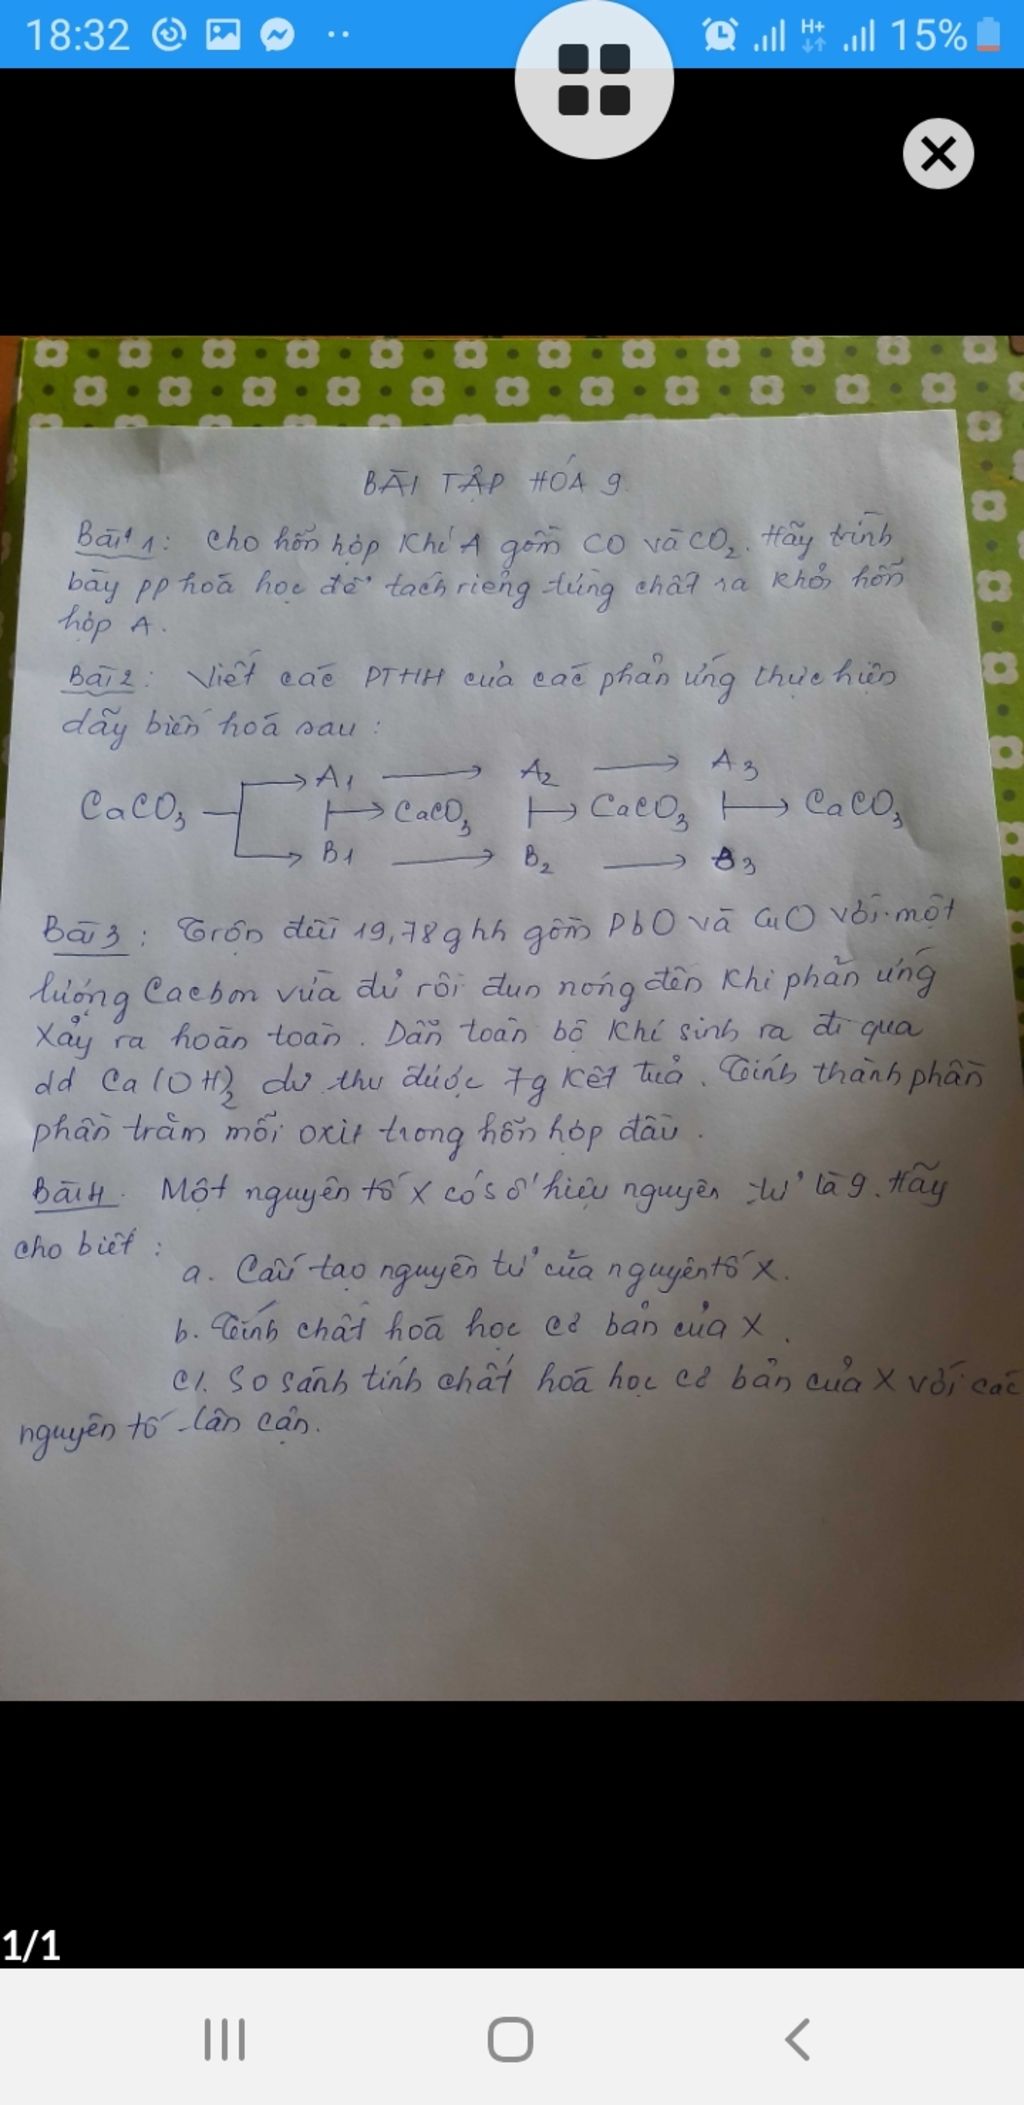 18:32
H+
15%
BÀI TẬP HÓA 9
Bài 1: Cho hỗn hợp khí A gồm CO và CO2. Hãy trình
bày pp hoá học để tách riêng từng chất ra khỏi hỗn
hợp A.
Bài 2: Viết các PTHH của các phản ứng thực hiện
dãy biến hoá sau:
A1 → A2 → A3
CaCO3 CaCO3 CaCO3 CaCO3
B1 → B2 → B3
Bài 3: Trộn đều 19,78g hh gồm PbO và CuO với một
lượng Cacbon vừa đủ rồi đun nóng đến khi phản ứng
xảy ra hoàn toàn. Dẫn toàn bộ khí sinh ra đi qua
dd Ca(OH)2 dư thu được 7g kết tủa. Tính thành phần
phần trăm mỗi oxit trong hỗn hợp đầu.
Bài 4. Một nguyên tố X có số hiệu nguyên tử là 9. Hãy
cho biết:
a. Cấu tạo nguyên tử của nguyên tố X.
b. Tính chất hoá học cơ bản của X.
c/. So sánh tính chất hoá học cơ bản của X với các
nguyên tố lân cận.
1/1